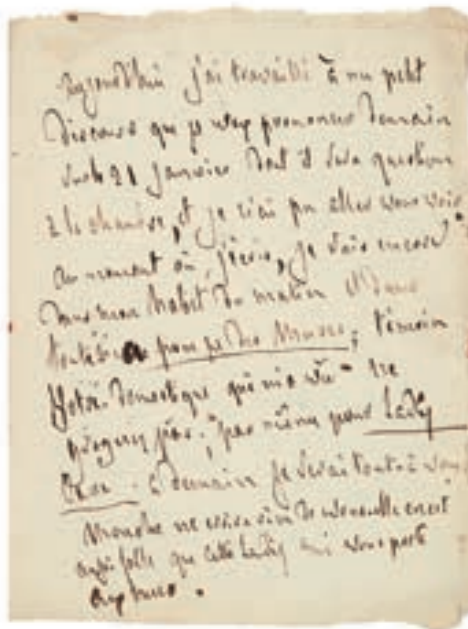 aujourd'hui j'ai travaillé à un petit
discours que je veux prononcer demain
sur le 21 Janvier dont il sera question
à la chambre, et je n'ai pu aller vous voir
au moment où j'écris, je suis encore
dans mon habit du matin et dans
toute la pompe des ; témoin
votre domestique qui m'a vu. ne
pas, pas même pour Lady
. à demain je serai tout à vous
ne
aussi folle que cette Lady qui vous porte
aux .